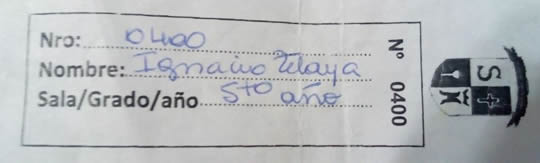 Nro: 0400
Nombre: Ignacio Zelaya
Sala/Grado/año 5to año
N° 0400
S